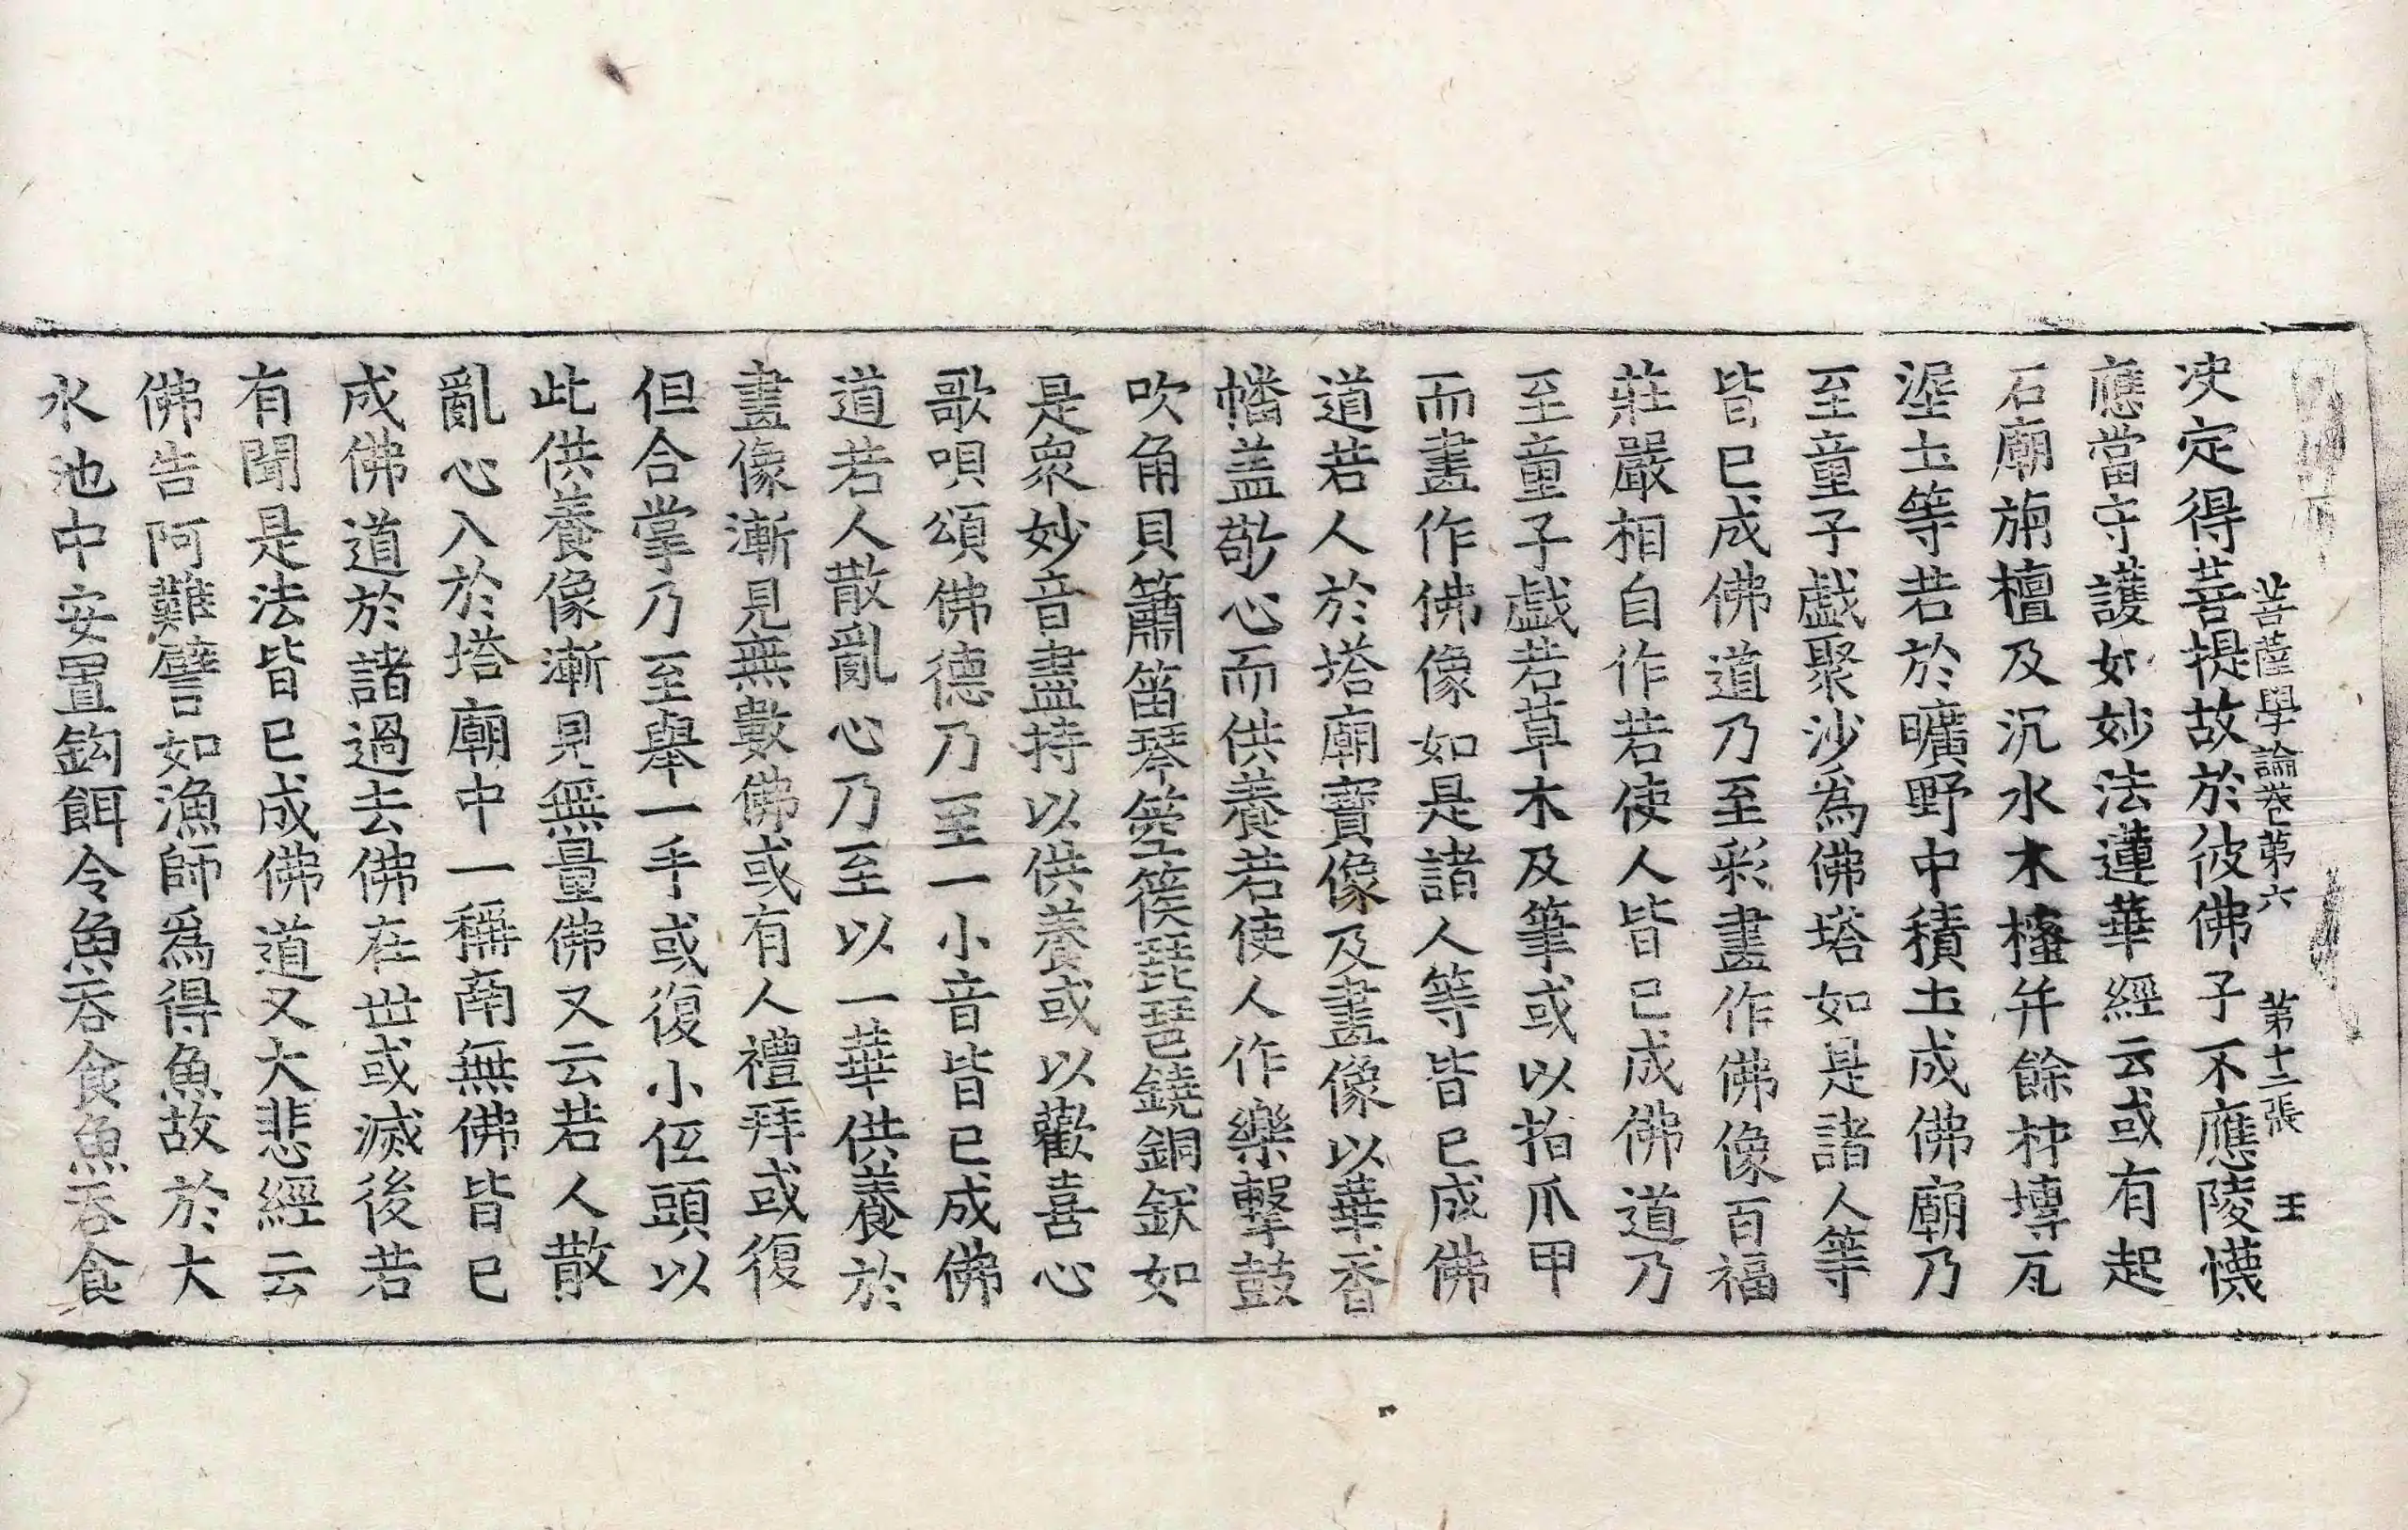 菩薩學論卷第六　第十二張　王
決定得菩提故於彼佛子不應陵懱
應當守護如妙法蓮華經云或有起
石廟旃檀及沉水木櫁并餘材塼瓦
埿土等若於曠野中積土成佛廟乃
至童子戲聚沙爲佛塔如是諸人等
皆已成佛道乃至彩畫作佛像百福
莊嚴相自作若使人皆已成佛道乃
至童子戲若草木及筆或以指爪甲
而畫作佛像如是諸人等皆已成佛
道若人於塔廟寶像及畫像以華香
幡盖敬心而供養若使人作樂擊鼓
吹角貝簫笛琴箜篌琵琶鐃銅鈸如
是衆妙音盡持以供養或以歡喜心
歌唄頌佛德乃至一小音皆已成佛
道若人散亂心乃至以一華供養於
畫像漸見無數佛或有人禮拜或復
但合掌乃至舉一手或復小低頭以
此供養像漸見無量佛又云若人散
亂心入於塔廟中一稱南無佛皆已
成佛道於諸過去佛在世或滅後若
有聞是法皆已成佛道又大悲經云
佛告阿難譬如漁師爲得魚故於大
水池中安置鈎餌令魚吞食魚吞食